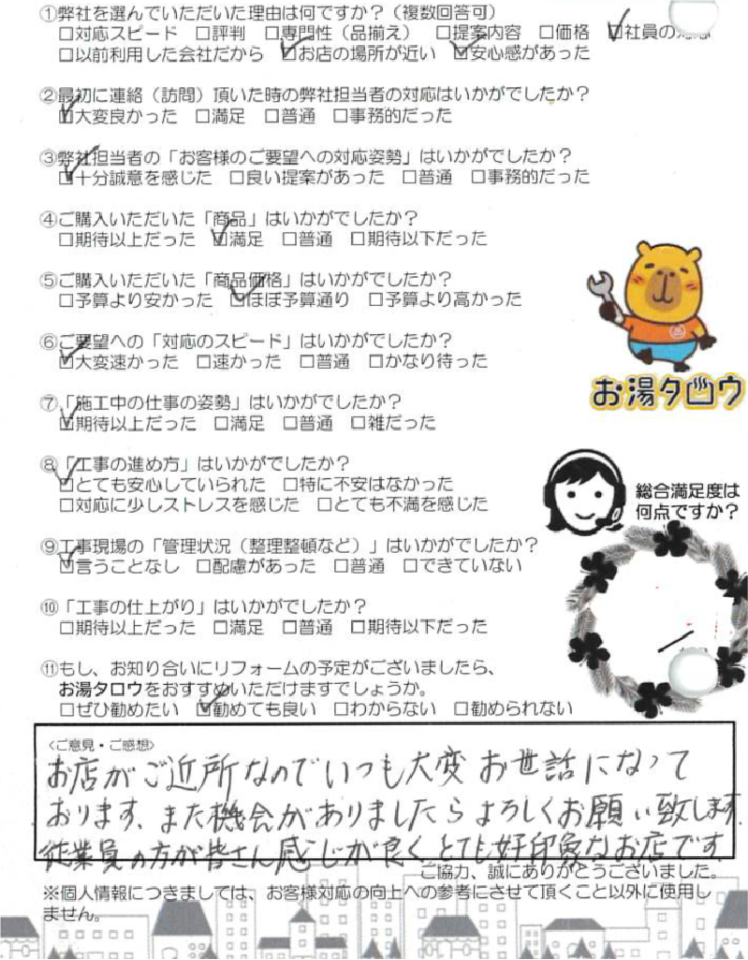 ①弊社を選んでいただいた理由は何ですか？（複数回答可）
□対応スピード □評判 □専門性（品揃え） □提案内容 □価格 ☑社員の
□以前利用した会社だから ☑お店の場所が近い ☑安心感があった
②最初に連絡（訪問）頂いた時の弊社担当者の対応はいかがでしたか？
☑大変良かった □満足 □普通 □事務的だった
③弊社担当者の「お客様のご要望への対応姿勢」はいかがでしたか？
☑十分誠意を感じた □良い提案があった □普通 □事務的だった
④ご購入いただいた「商品」はいかがでしたか？
□期待以上だった ☑満足 □普通 □期待以下だった
⑤ご購入いただいた「商品価格」はいかがでしたか？
□予算より安かった ☑ほぼ予算通り □予算より高かった
⑥ご要望への「対応のスピード」はいかがでしたか？
☑大変速かった □速かった □普通 □かなり待った
お湯タロウ
⑦「施工中の仕事の姿勢」はいかがでしたか？
☑期待以上だった □満足 □普通 □雑だった
⑧「工事の進め方」はいかがでしたか？
☑とても安心していられた □特に不安はなかった
□対応に少しストレスを感じた □とても不満を感じた
総合満足度は
何点ですか？
⑨工事現場の「管理状況（整理整頓など）」はいかがでしたか？
☑言うことなし □配慮があった □普通 □できていない
⑩「工事の仕上がり」はいかがでしたか？
□期待以上だった □満足 □普通 □期待以下だった
⑪もし、お知り合いにリフォームの予定がございましたら、
お湯タロウをおすすめいただけますでしょうか。
□ぜひ勧めたい ☑勧めても良い □わからない □勧められない
<ご意見・ご感想>
お店がご近所なのでいつも大変お世話になって
おります、また機会がありましたらよろしくお願い致します
従業員の方が皆さん感じが良くとても好印象なお店です。
ご協力、誠にありがとうございました。
※個人情報につきましては、お客様対応の向上への参考にさせて頂くこと以外に使用し
ません。